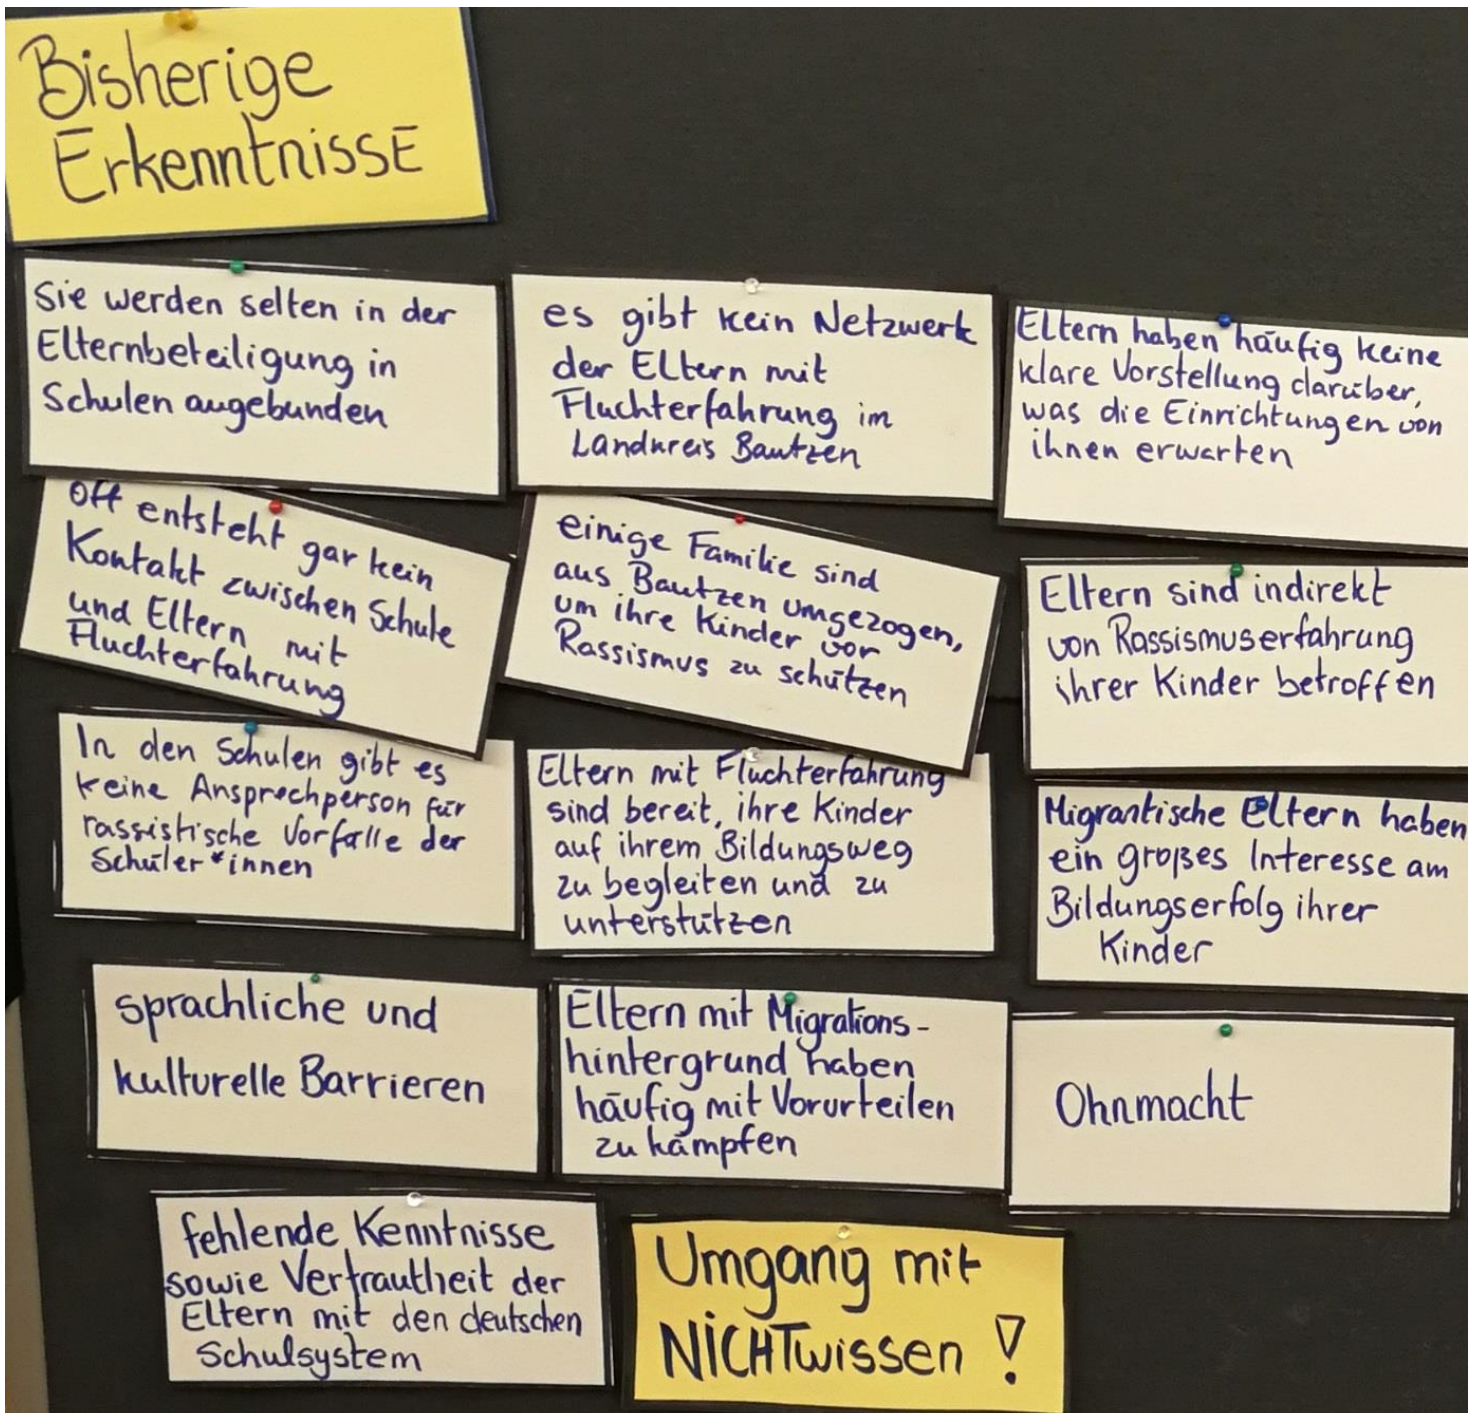 Bisherige
ErkenntnissE
Sie werden selten in der
Elternbeteiligung in
Schulen angebunden
es gibt kein Netzwerk
der Eltern mit
Fluchterfahrung im
Landkreis Bautzen
Eltern haben häufig keine
klare Vorstellung darüber,
was die Einrichtungen von
ihnen erwarten
Oft entsteht gar kein
Kontakt zwischen Schule
und Eltern mit
Fluchterfahrung
einige Familie sind
aus Bautzen umgezogen,
um ihre Kinder vor
Rassismus zu schützen
Eltern sind indirekt
von Rassismuserfahrung
ihrer Kinder betroffen
In den Schulen gibt es
keine Ansprechperson für
rassistische Vorfälle der
Schüler*innen
Eltern mit Fluchterfahrung
sind bereit, ihre Kinder
auf ihrem Bildungsweg
zu begleiten und zu
unterstützen
Migrantische Eltern haben
ein großes Interesse am
Bildungserfolg ihrer
Kinder
sprachliche und
kulturelle Barrieren
Eltern mit Migrations-
hintergrund haben
häufig mit Vorurteilen
zu kämpfen
Ohnmacht
fehlende Kenntnisse
sowie Vertrautheit der
Eltern mit den deutschen
Schulsystem
Umgang mit
NICHTwissen !